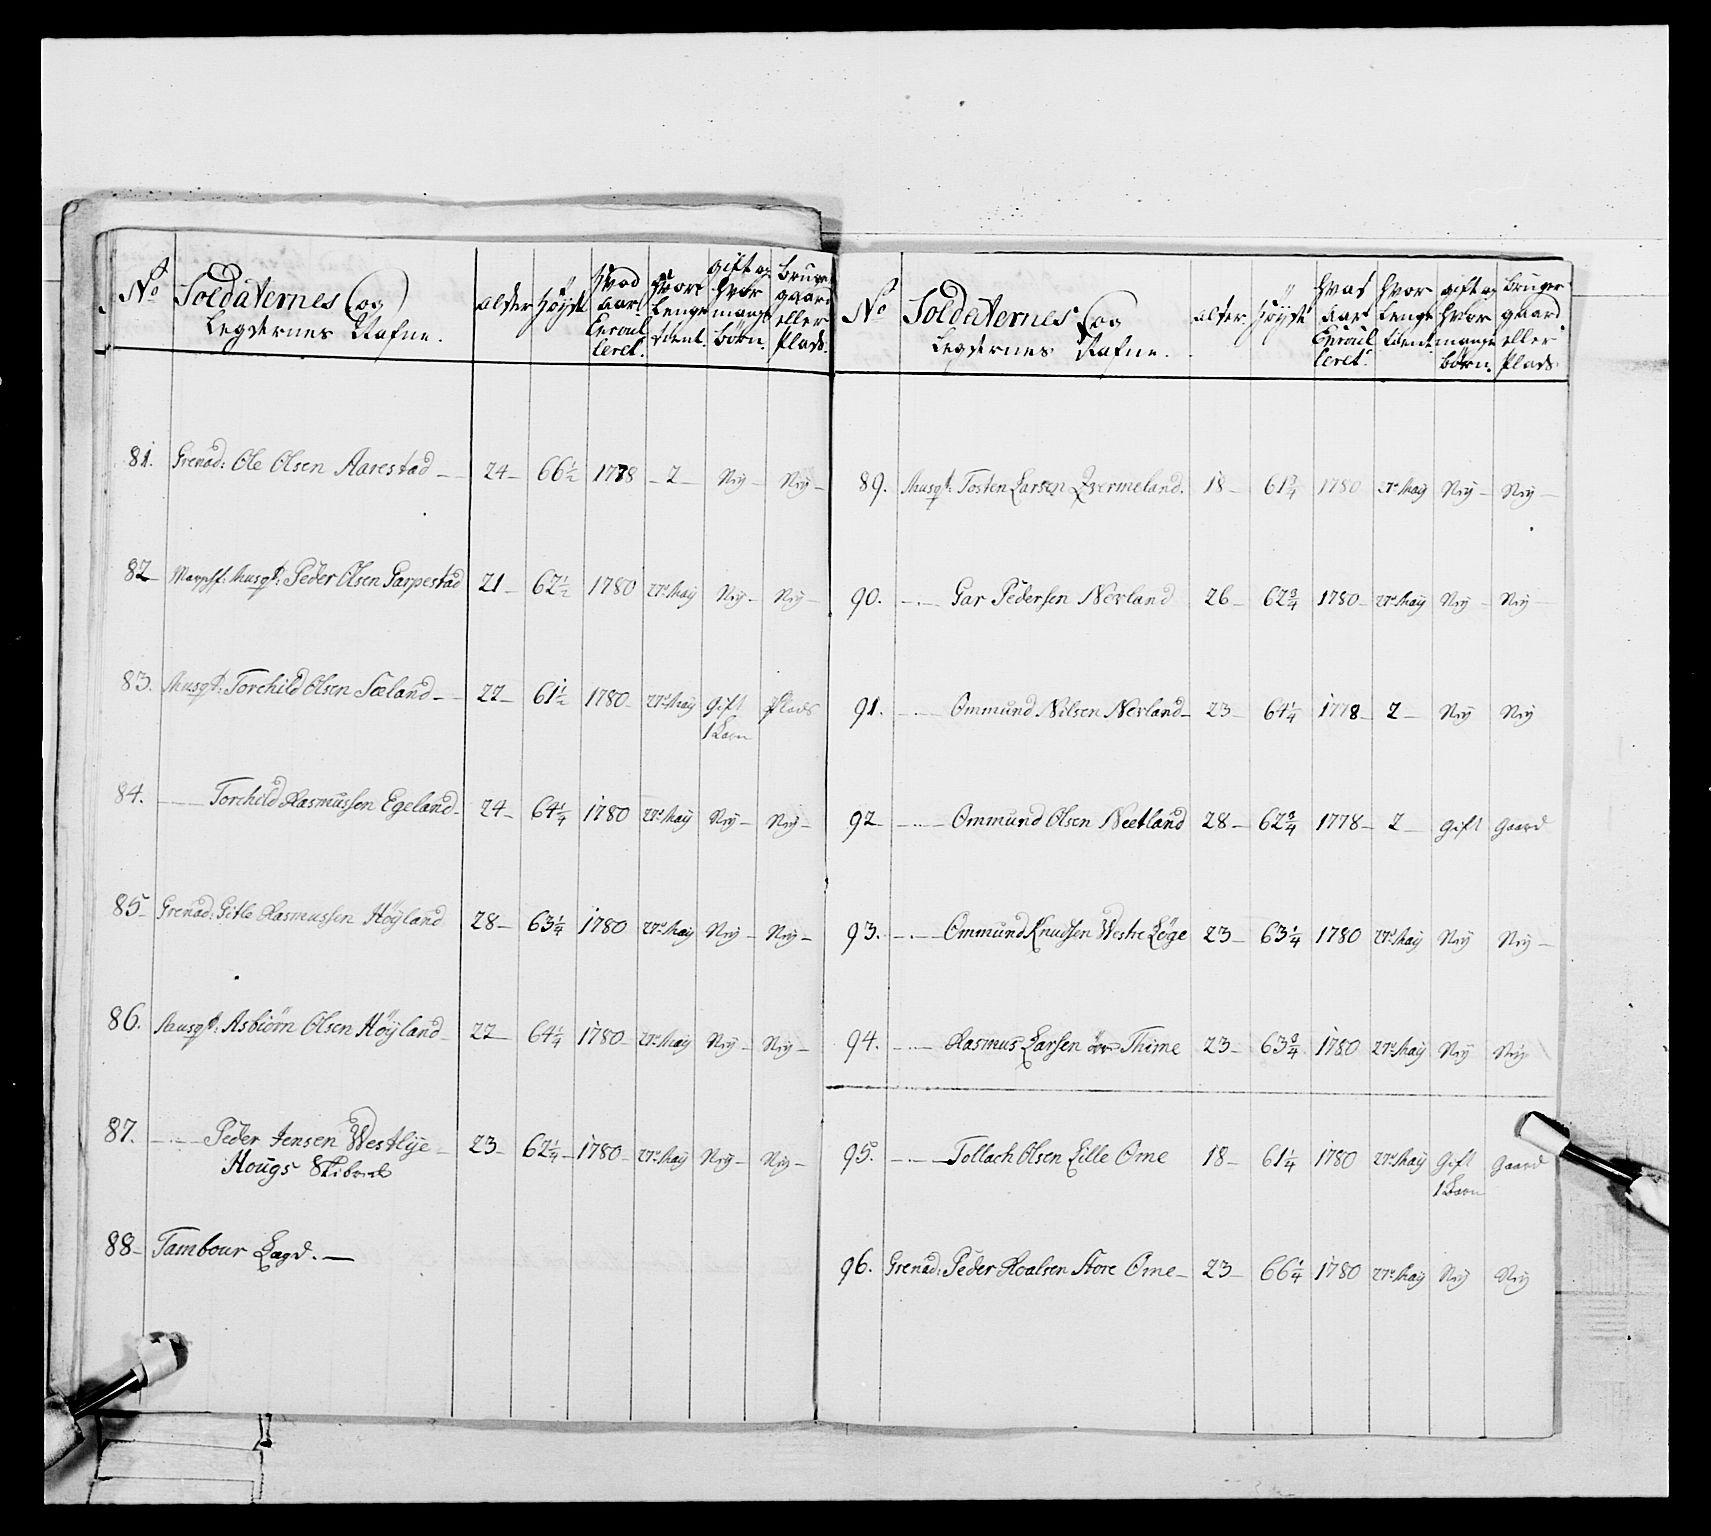 No Soldaternes og Legdernes Nafne. alder Høyde Hvad Aar Enroulleret. Hvor Lenge tient. gift og Hvor mange Børn. Bruger gaard eller Plads.
81. Grenad: Ole Olsen Aarestad — 24 — 66½ 1778 — 2 — Nÿ — Nÿ —
82 Musqt: Peder Olsen Garpestad 21 — 62½ 1780 27de Maÿ Nÿ — Nÿ —
83. Musqt: Torchild Olsen Sæland — 22 — 61½ 1780 27de Maÿ gift Plads
1 Barn
84. — Torchild Rasmussen Egeland — 24 — 64¼ 1780 27de Maÿ Nÿ — Nÿ —
85 Grenad: Gitle Rasmussen Höÿland 28 — 63¼ 1780 27de Maÿ Nÿ — Nÿ —
86. Musqt: Asbiörn Olsen Höÿland 22 — 64¼ 1780 27de Maÿ Nÿ — Nÿ —
87. — Peder Jensen Westlÿe — 23 62¼ — 1780 — 27de Maÿ Nÿ — Nÿ —
Hougs Skibred
88 — Tambour Lægd. —
No Soldaternes og Legdernes Nafne. alder Høyde Hvad Aar Enroulleret. Hvor Lenge tient. gift og Hvor mange Børn. Bruger gaard eller Plads.
89. Musqt: Tosten Larsen Qvermeland. 18 — 61¾ 1780 27de Maÿ Nÿ — Nÿ —
90. — Gar Pedersen Nerland 26 — 62¾ 1780 — 27de Maÿ Nÿ — Nÿ
91. — Ommund Nilsen Nerland — 23 — 64¼ 1778 — 2 — Nÿ Nÿ
92 — Ommund Olsen Neetland 28 — 62¾ 1778 — 2 — gift gaard
93. — Ommund Knudsen Westre Löge 23 — 63¼ 1780 27de Maÿ Nÿ Nÿ —
94. — Rasmus Larsen övr Thime 23 — 63¾ 1780 27de Maÿ Nÿ Nÿ
95. — Tollach Olsen Lille Ome 18 — 61¼ 1780 27de Maÿ gift gaard
1 Barn
96. Grenad: Peder Roalsen Store Ome — 23 — 66¼ 1780 27de Maÿ Nÿ Nÿ